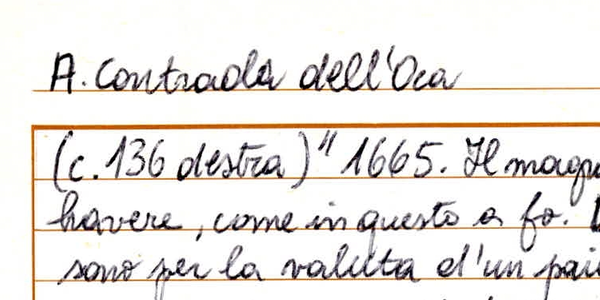 A. Contrada dell'Oca
(c. 136 destra) " 1665. Il
havere, come in questo a fo.
sono per la valuta d'un